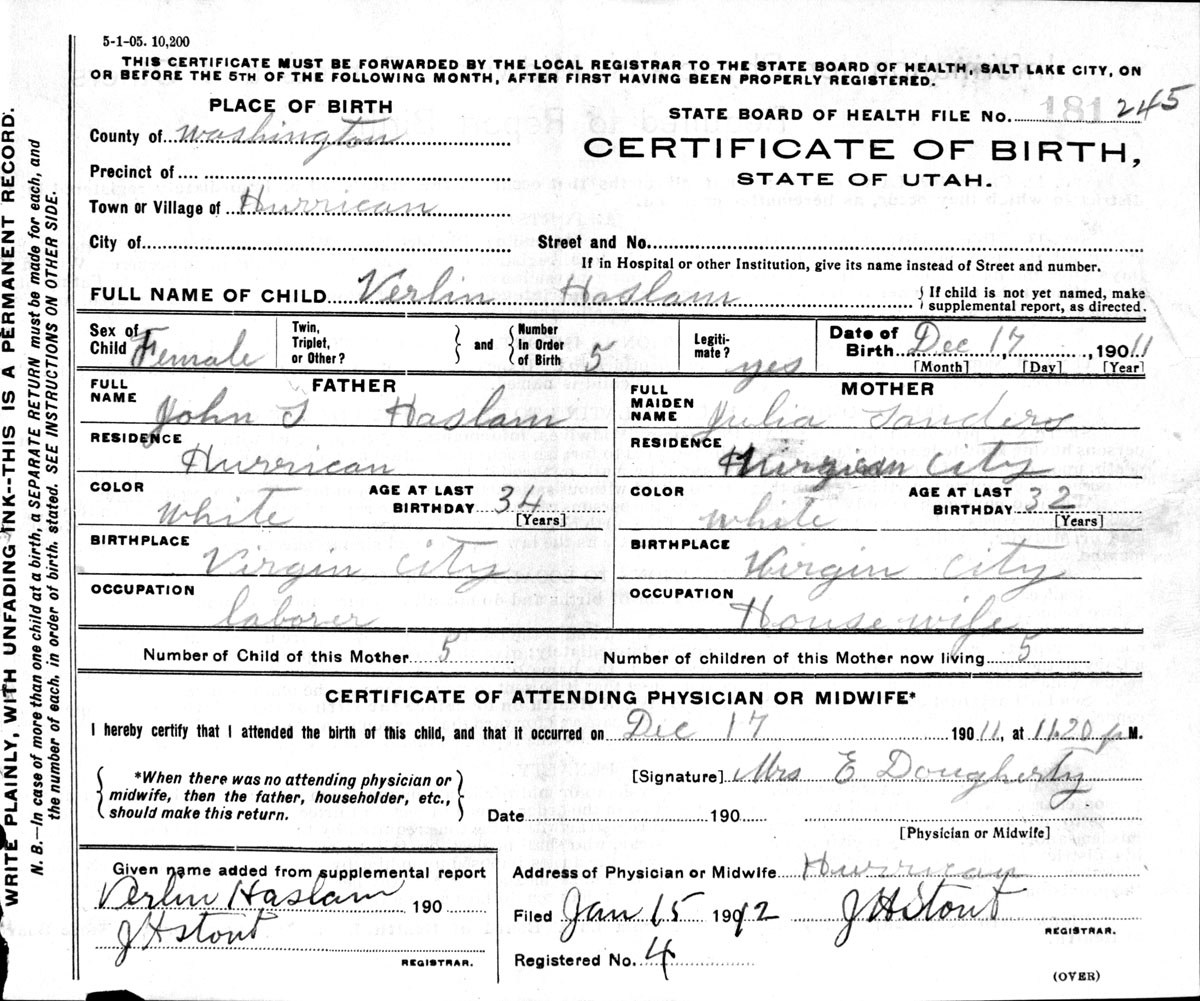 5-1-05. 10,200
THIS CERTIFICATE MUST BE FORWARDED BY THE LOCAL REGISTRAR TO THE STATE BOARD OF HEALTH, SALT LAKE CITY, ON
OR BEFORE THE 5TH OF THE FOLLOWING MONTH, AFTER FIRST HAVING BEEN PROPERLY REGISTERED.
PLACE OF BIRTH
STATE BOARD OF HEALTH FILE No. 181 245
County of Washington
CERTIFICATE OF BIRTH,
STATE OF UTAH.
Precinct of
Town or Village of Hurrican
City of
Street and No.
If in Hospital or other Institution, give its name instead of Street and number.
FULL NAME OF CHILD Verlin Haslam
{ If child is not yet named, make
supplemental report, as directed.
Sex of Child Female
Twin, Triplet, or Other?
} and {
Number In Order of Birth 5
Legitimate? yes
Date of Birth Dec 17, 1911
[Month] [Day] [Year]
FATHER
FULL NAME John S Haslam
MOTHER
FULL MAIDEN NAME Julia Sanders
RESIDENCE Hurrican
RESIDENCE City
COLOR white
AGE AT LAST BIRTHDAY 34
[Years]
COLOR white
AGE AT LAST BIRTHDAY 32
[Years]
BIRTHPLACE Virgin City
BIRTHPLACE Virgin City
OCCUPATION laborer
OCCUPATION House wife
Number of Child of this Mother 5
Number of children of this Mother now living 5
CERTIFICATE OF ATTENDING PHYSICIAN OR MIDWIFE*
I hereby certify that I attended the birth of this child, and that it occurred on Dec 17 190 11, at 11.20 p M.
{ *When there was no attending physician or
midwife, then the father, householder, etc.,
should make this return. }
[Signature] Mrs E Dougherty
Date 190
[Physician or Midwife]
Given name added from supplemental report
Verlin Haslam 190
J H Stout
REGISTRAR.
Address of Physician or Midwife Hurrican
Filed Jan 15 1912 J H Stout
REGISTRAR.
Registered No. 4
(OVER)
WRITE PLAINLY, WITH UNFADING INK--THIS IS A PERMANENT RECORD.
N. B.—In case of more than one child at a birth, a SEPARATE RETURN must be made for each, and
the number of each, in order of birth, stated. SEE INSTRUCTIONS ON OTHER SIDE.